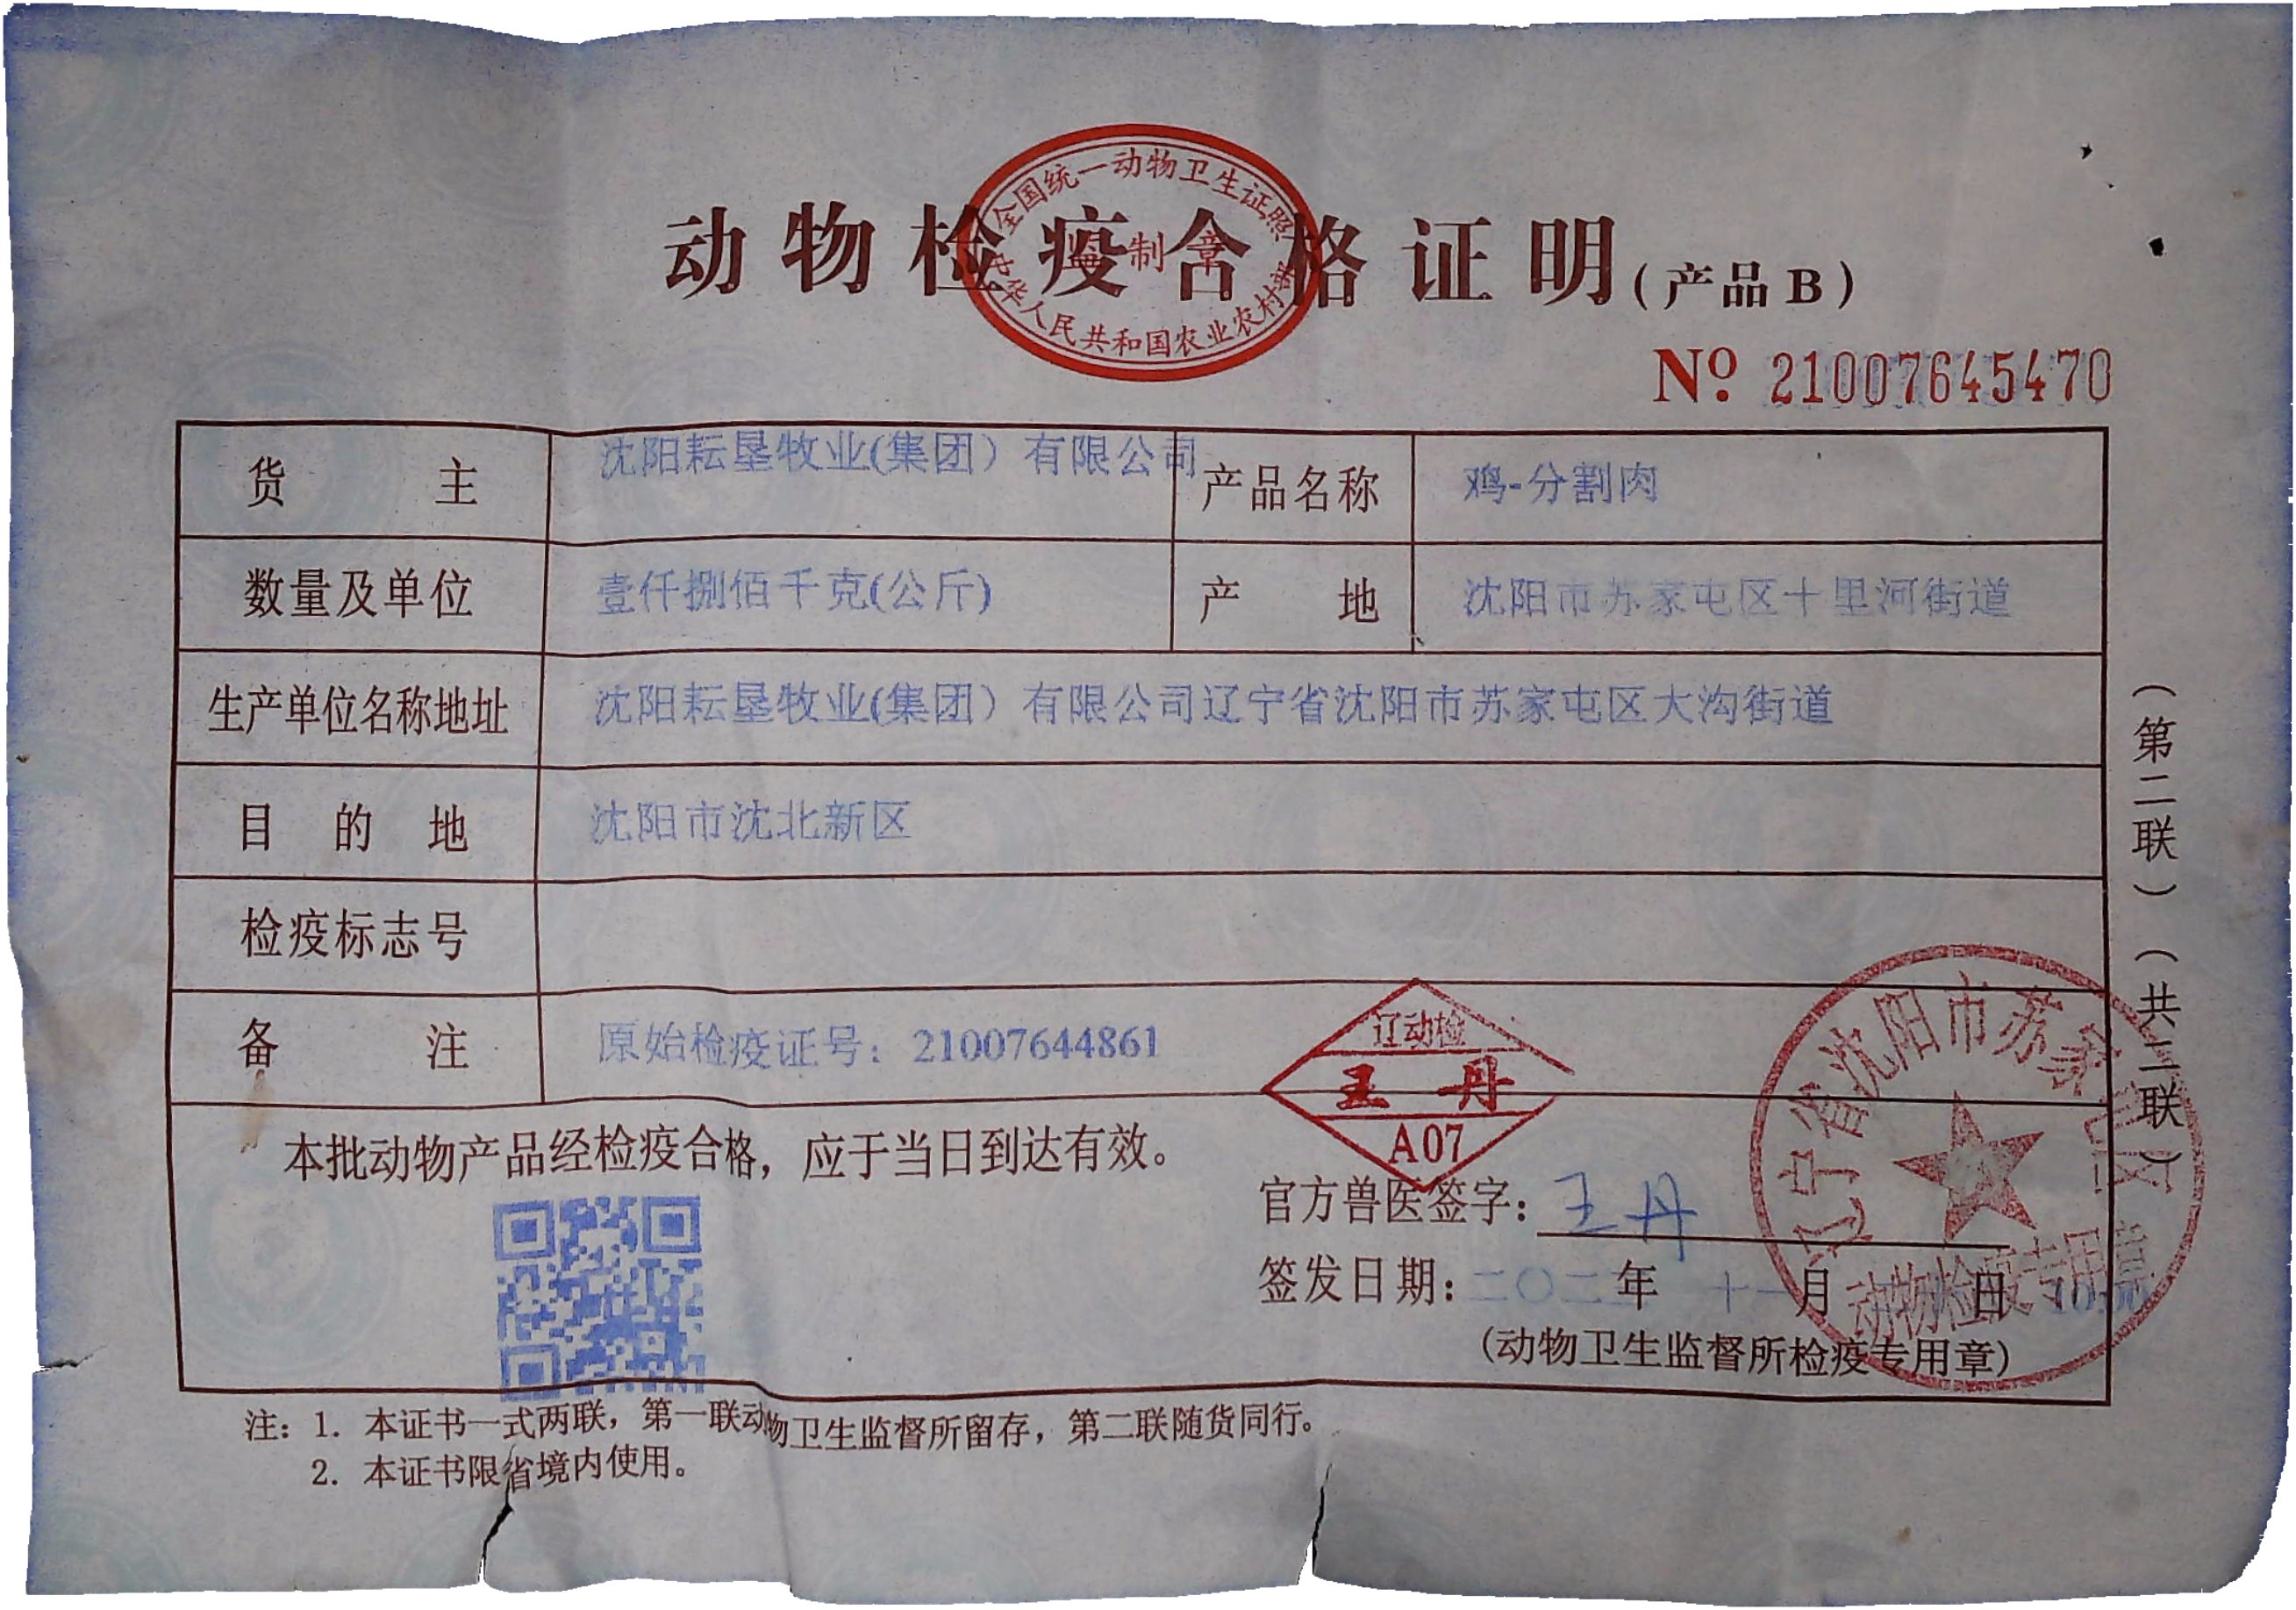 全国统一动物卫生证照
监制章
中华人民共和国农业农村部
动物检疫合格证明(产品B)
№ 21007645470
货主 沈阳耘垦牧业(集团)有限公司 产品名称 鸡-分割肉
数量及单位 壹仟捌佰千克(公斤) 产地 沈阳市苏家屯区十里河街道
生产单位名称地址 沈阳耘垦牧业(集团)有限公司辽宁省沈阳市苏家屯区大沟街道
目的地 沈阳市沈北新区
检疫标志号
备注 原始检疫证号：21007644861
辽动检
王丹
A07
本批动物产品经检疫合格，应于当日到达有效。
官方兽医签字：王丹
签发日期：二〇二 年 十一月 日
(动物卫生监督所检疫专用章)
辽宁省沈阳市苏家屯区
动物检疫专用章
(第二联)(共二联)
注：1. 本证书一式两联，第一联动物卫生监督所留存，第二联随货同行。
2. 本证书限省境内使用。